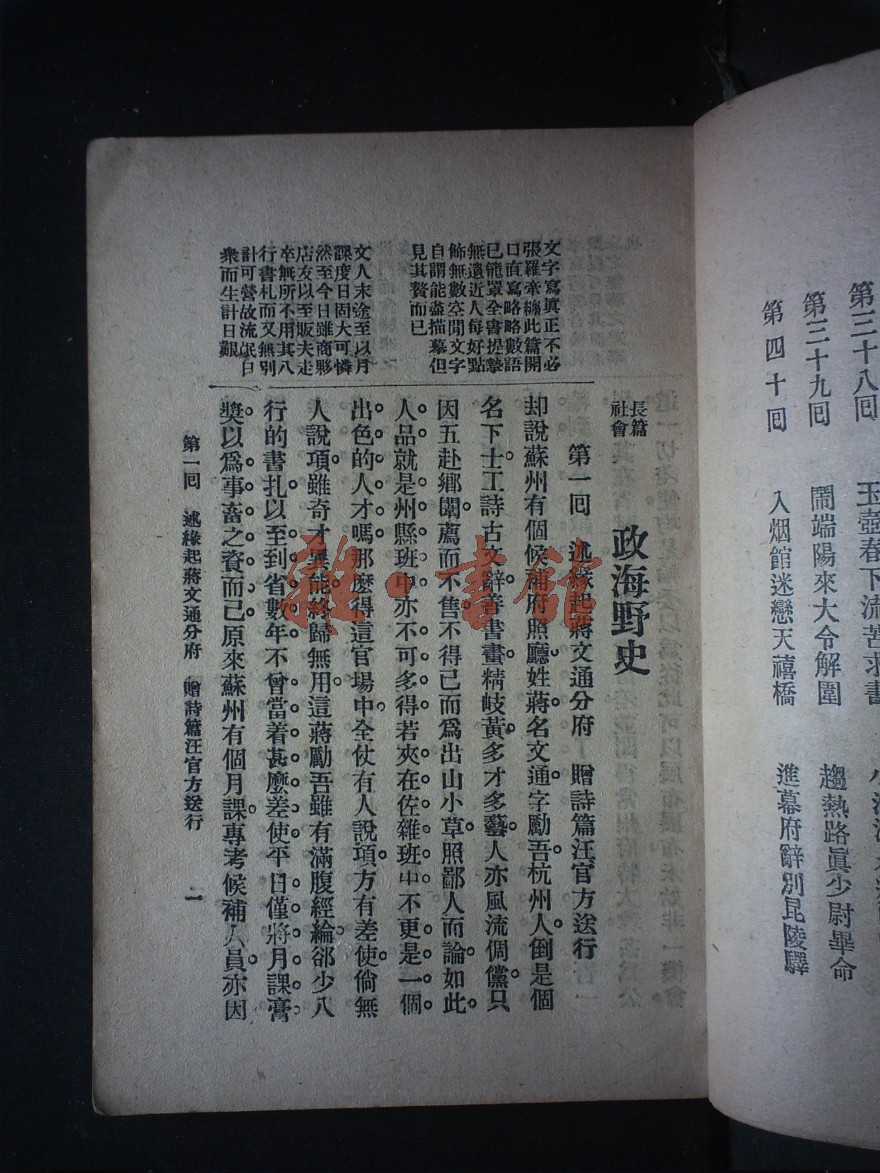 第三十八回　玉壺春下流苦求書
第三十九回　鬧端陽來大令解圍　趨熱路眞少尉畢命
第四十回　入烟館迷戀天禧橋　進幕府辭別毘陵驛
文字寫眞正不必
張羅牽纏此篇開
口直寫略略數語
已籠罩全書提挈
無遺近人每好點
飾無數空閒文字
自謂能盡描摹但
見其贅而已
文人末途至以月
課度日固大可憐
然至今日雖商夥
店友以至販夫走
卒無所不用其八
行書札而又無別
計可營故流氓日
衆而生計日艱
長篇
社會
政海野史
第一回　述緣起蔣文通分府　贈詩篇汪官方送行
却說蘇州有個候補府照廳姓蔣名文通字勵吾杭州人倒是個
名下士工詩古文辭善書畫精岐黃多才多藝人亦風流倜儻只
因五赴鄉闈薦而不售不得已而爲出山小草照鄙人而論如此
人品就是州縣班中亦不可多得若夾在佐雜班中不更是一個
出色的人才嗎那麽得這官場中全仗有人說項方有差使倘無
人說項雖奇才異能終歸無用這蔣勵吾雖有滿腹經綸郤少八
行的書扎以至到省數年不曾當着甚麽差使平日僅將月課膏
獎以爲事畜之資而已原來蘇州有個月課專考候補人員亦因
第一回　述緣起蔣文通分府　贈詩篇汪官方送行　一
雜·書館